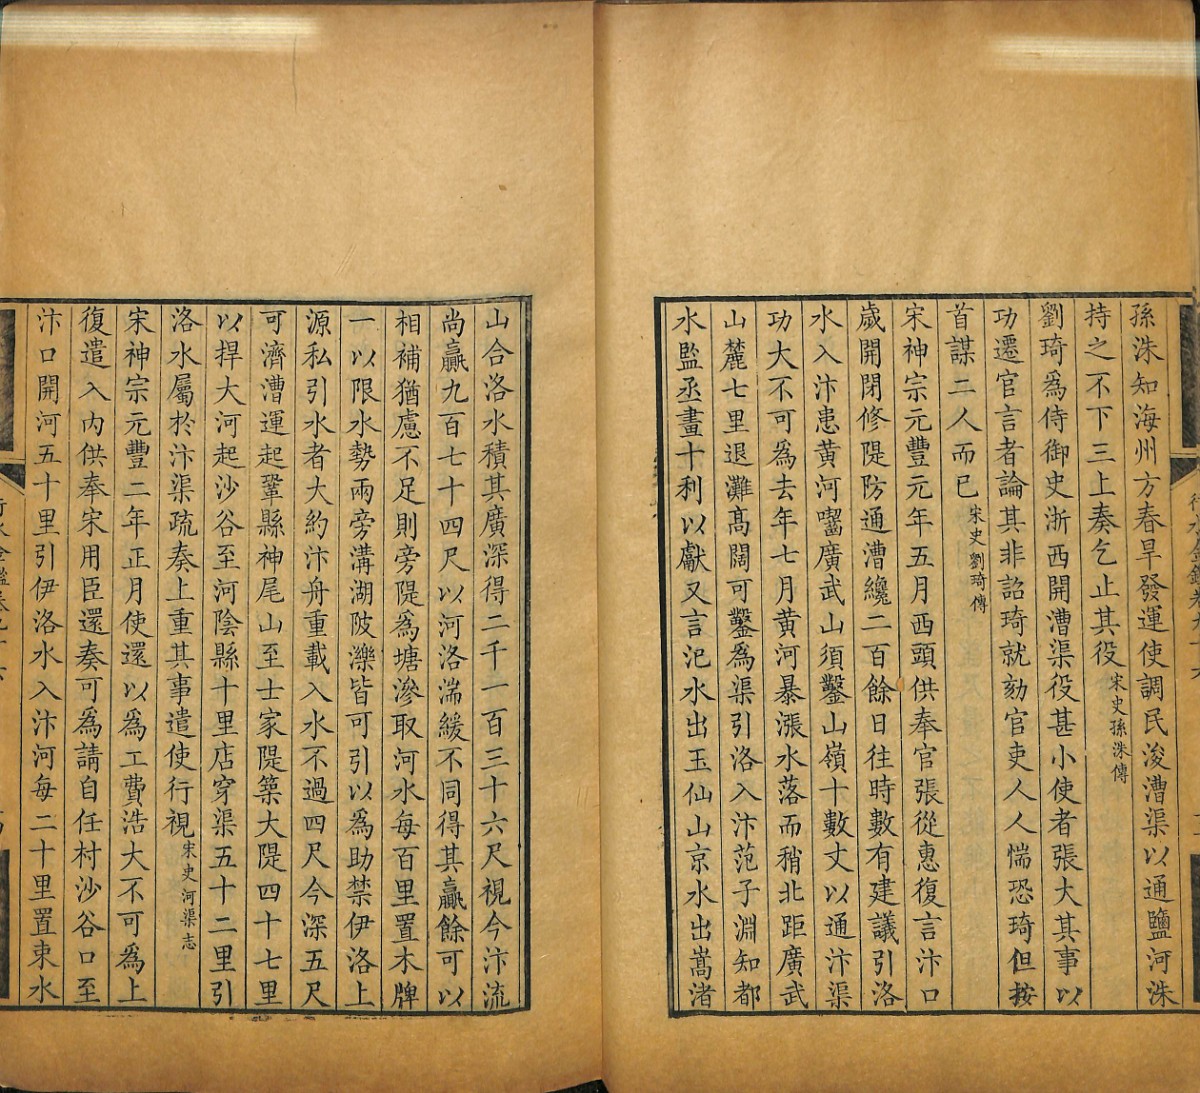 孫洙知海州方春旱發運使調民浚漕渠以通鹽河洙
持之不下三上奏乞止其役宋史孫洙傳
劉琦爲侍御史浙西開漕渠役甚小使者張大其事以
功遷官言者論其非詔琦就劾官吏人人惴恐琦但按
首謀二人而已宋史劉琦傳
宋神宗元豐元年五月西頭供奉官張從惠復言汴口
歲開閉修隄防通漕纔二百餘日往時數有建議引洛
水入汴患黃河齧廣武山須鑿山嶺十數丈以通汴渠
功大不可爲去年七月黃河暴漲水落而稍北距廣武
山麓七里退灘高闊可鑿爲渠引洛入汴范子淵知都
水監丞畫十利以獻又言汜水出玉仙山京水出嵩渚
山合洛水積其廣深得二千一百三十六尺視今汴流
尚贏九百七十四尺以河洛湍緩不同得其贏餘可以
相補猶慮不足則旁隄爲塘滲取河水每百里置木牌
一以限水勢兩旁溝湖陂濼皆可引以爲助禁伊洛上
源私引水者大約汴舟重載入水不過四尺今深五尺
可濟漕運起鞏縣神尾山至士家隄築大隄四十七里
以捍大河起沙谷至河陰縣十里店穿渠五十二里引
洛水屬於汴渠疏奏上重其事遣使行視宋史河渠志
宋神宗元豐二年正月使還以爲工費浩大不可爲上
復遣入內供奉宋用臣還奏可爲請自任村沙谷口至
汴口開河五十里引伊洛水入汴河每二十里置束水